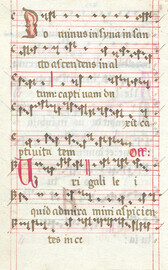 Dominus in syna in san
cto ascendens in al
tum: capti uam du
xit ca
ptiuita tem Off:
Ui ri gali le i
quid admira mini aspicien
tes in ce